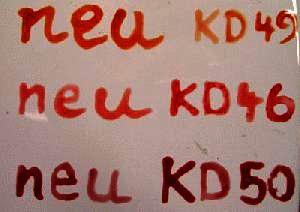 neu KD49
neu KD46
neu KD50